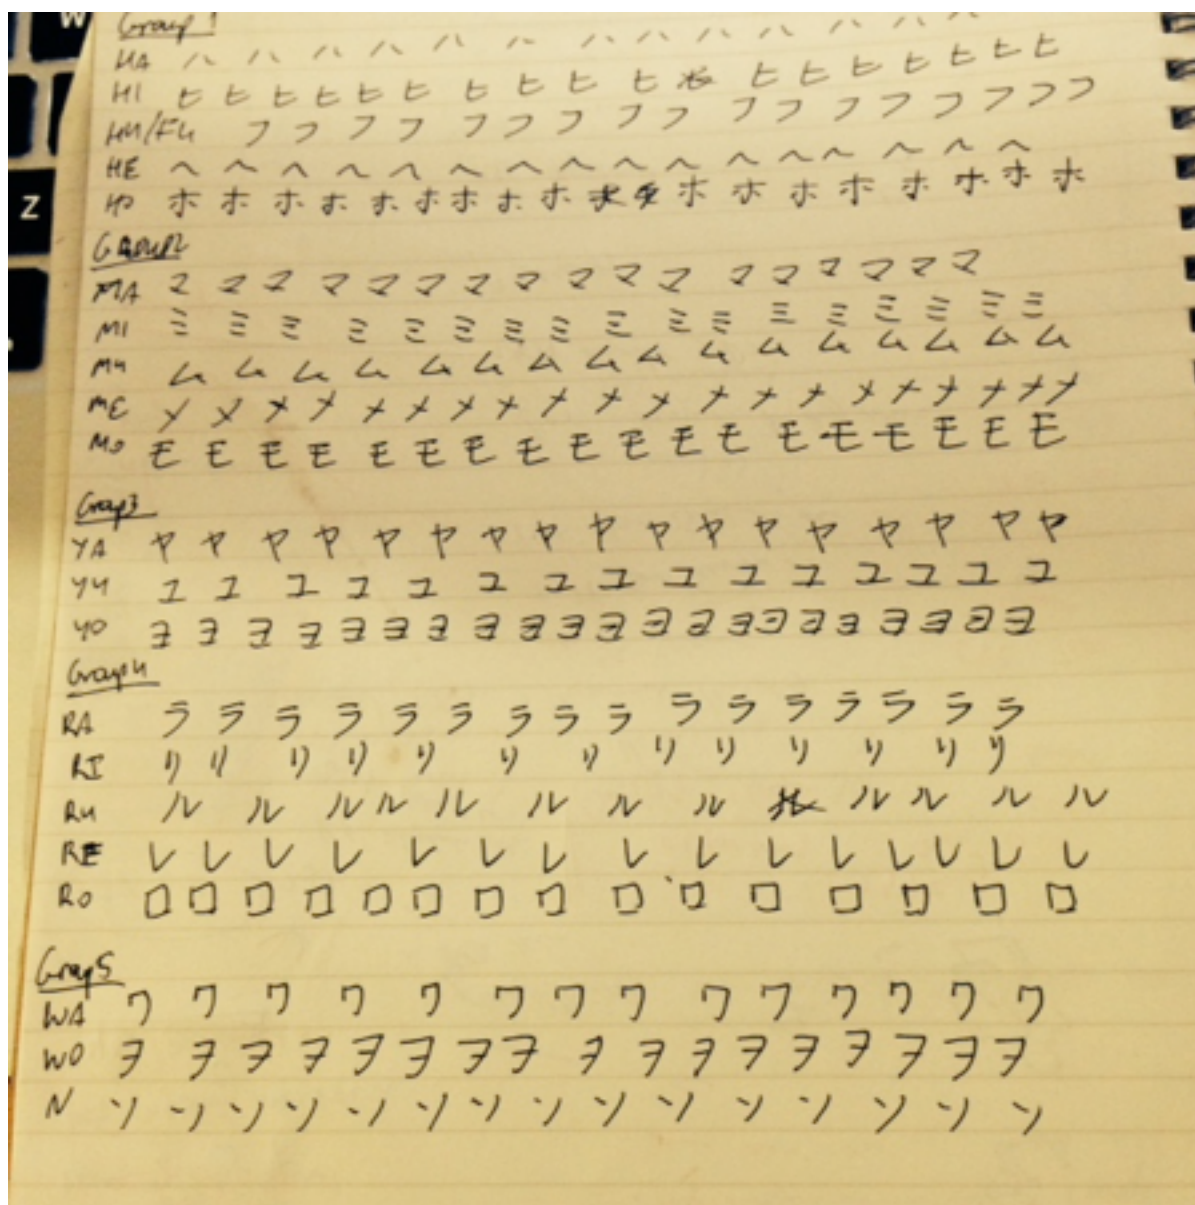 W
Z
Group 1
HA ハ ハ ハ ハ ハ ハ ハ ハ ハ ハ ハ ハ ハ ハ
HI ヒ ヒ ヒ ヒ ヒ ヒ ヒ ヒ ヒ ヒ ヒ ヒ ヒ ヒ ヒ ヒ ヒ
HU/FU フ フ フ フ フ フ フ フ フ フ フ フ フ フ フ フ フ
HE ヘ ヘ ヘ ヘ ヘ ヘ ヘ ヘ ヘ ヘ ヘ ヘ ヘ ヘ ヘ ヘ
HO ホ ホ ホ ホ ホ ホ ホ ホ ホ ホ ホ ホ ホ ホ ホ ホ ホ
GROUP2
MA マ マ マ マ マ マ マ マ マ マ マ マ マ マ マ マ マ
MI ミ ミ ミ ミ ミ ミ ミ ミ ミ ミ ミ ミ ミ ミ ミ ミ ミ
MU ム ム ム ム ム ム ム ム ム ム ム ム ム ム ム ム
ME メ メ メ メ メ メ メ メ メ メ メ メ メ メ メ メ メ メ メ
MO モ モ モ モ モ モ モ モ モ モ モ モ モ モ モ モ モ
Group3
YA ヤ ヤ ヤ ヤ ヤ ヤ ヤ ヤ ヤ ヤ ヤ ヤ ヤ ヤ ヤ ヤ ヤ
YU ユ ユ ユ ユ ユ ユ ユ ユ ユ ユ ユ ユ ユ ユ ユ
YO ヨ ヨ ヨ ヨ ヨ ヨ ヨ ヨ ヨ ヨ ヨ ヨ ヨ ヨ ヨ ヨ ヨ ヨ ヨ ヨ ヨ
Group4
RA ラ ラ ラ ラ ラ ラ ラ ラ ラ ラ ラ ラ ラ ラ ラ ラ
RI リ リ リ リ リ リ リ リ リ リ リ リ リ
RU ル ル ル ル ル ル ル ル ル ル ル ル
RE レ レ レ レ レ レ レ レ レ レ レ レ レ レ レ
RO ロ ロ ロ ロ ロ ロ ロ ロ ロ ロ ロ ロ ロ ロ ロ
Group5
WA ワ ワ ワ ワ ワ ワ ワ ワ ワ ワ ワ ワ ワ ワ
WO ヲ ヲ ヲ ヲ ヲ ヲ ヲ ヲ ヲ ヲ ヲ ヲ ヲ ヲ ヲ ヲ ヲ
N ン ン ン ン ン ン ン ン ン ン ン ン ン ン ン